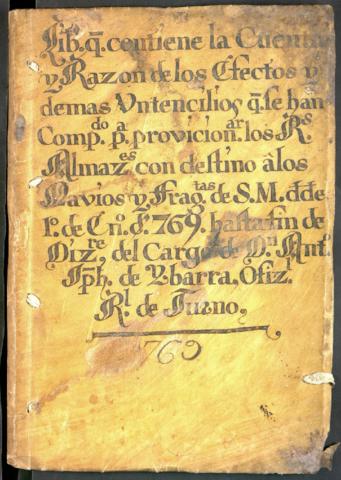 Lib. q̄. contiene la Cuenta
y Razon de los Efectos y
demas Vntencilios q̄. se han
Comp.do p.a provicion.ar los R.s
Almaz.es con destino àlos
Navios y Frag.tas de S. M. dd̄e
1.º de En.º d.º 769. hasta fin de
Diz.re, del Cargo de D.n Ant.º
Jph. de Ybarra, Ofiz.l
R.l de Turno,
769